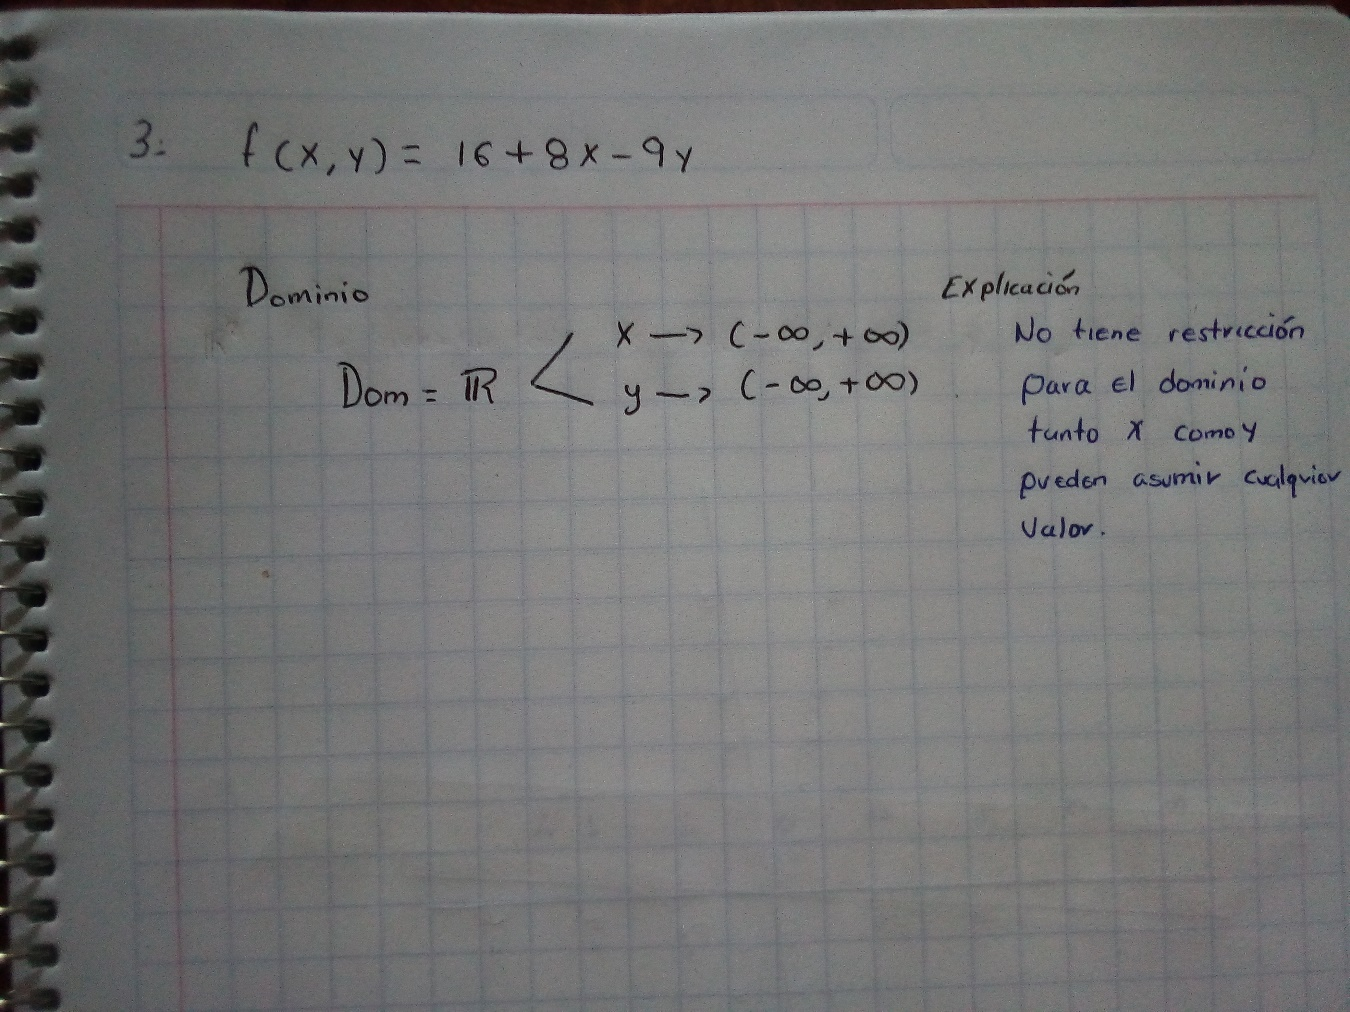 3. f(x,y) = 16+8x-9y
Dominio
Dom = ℝ < x → (-∞,+∞)
y → (-∞,+∞)
Explicación
No tiene restricción
para el dominio
tanto x como y
pueden asumir cualquier
valor.